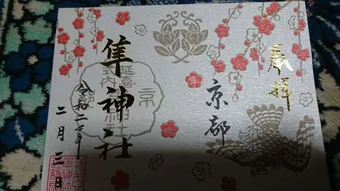 奉拝
京都
隼神社
令和二年
二月三日